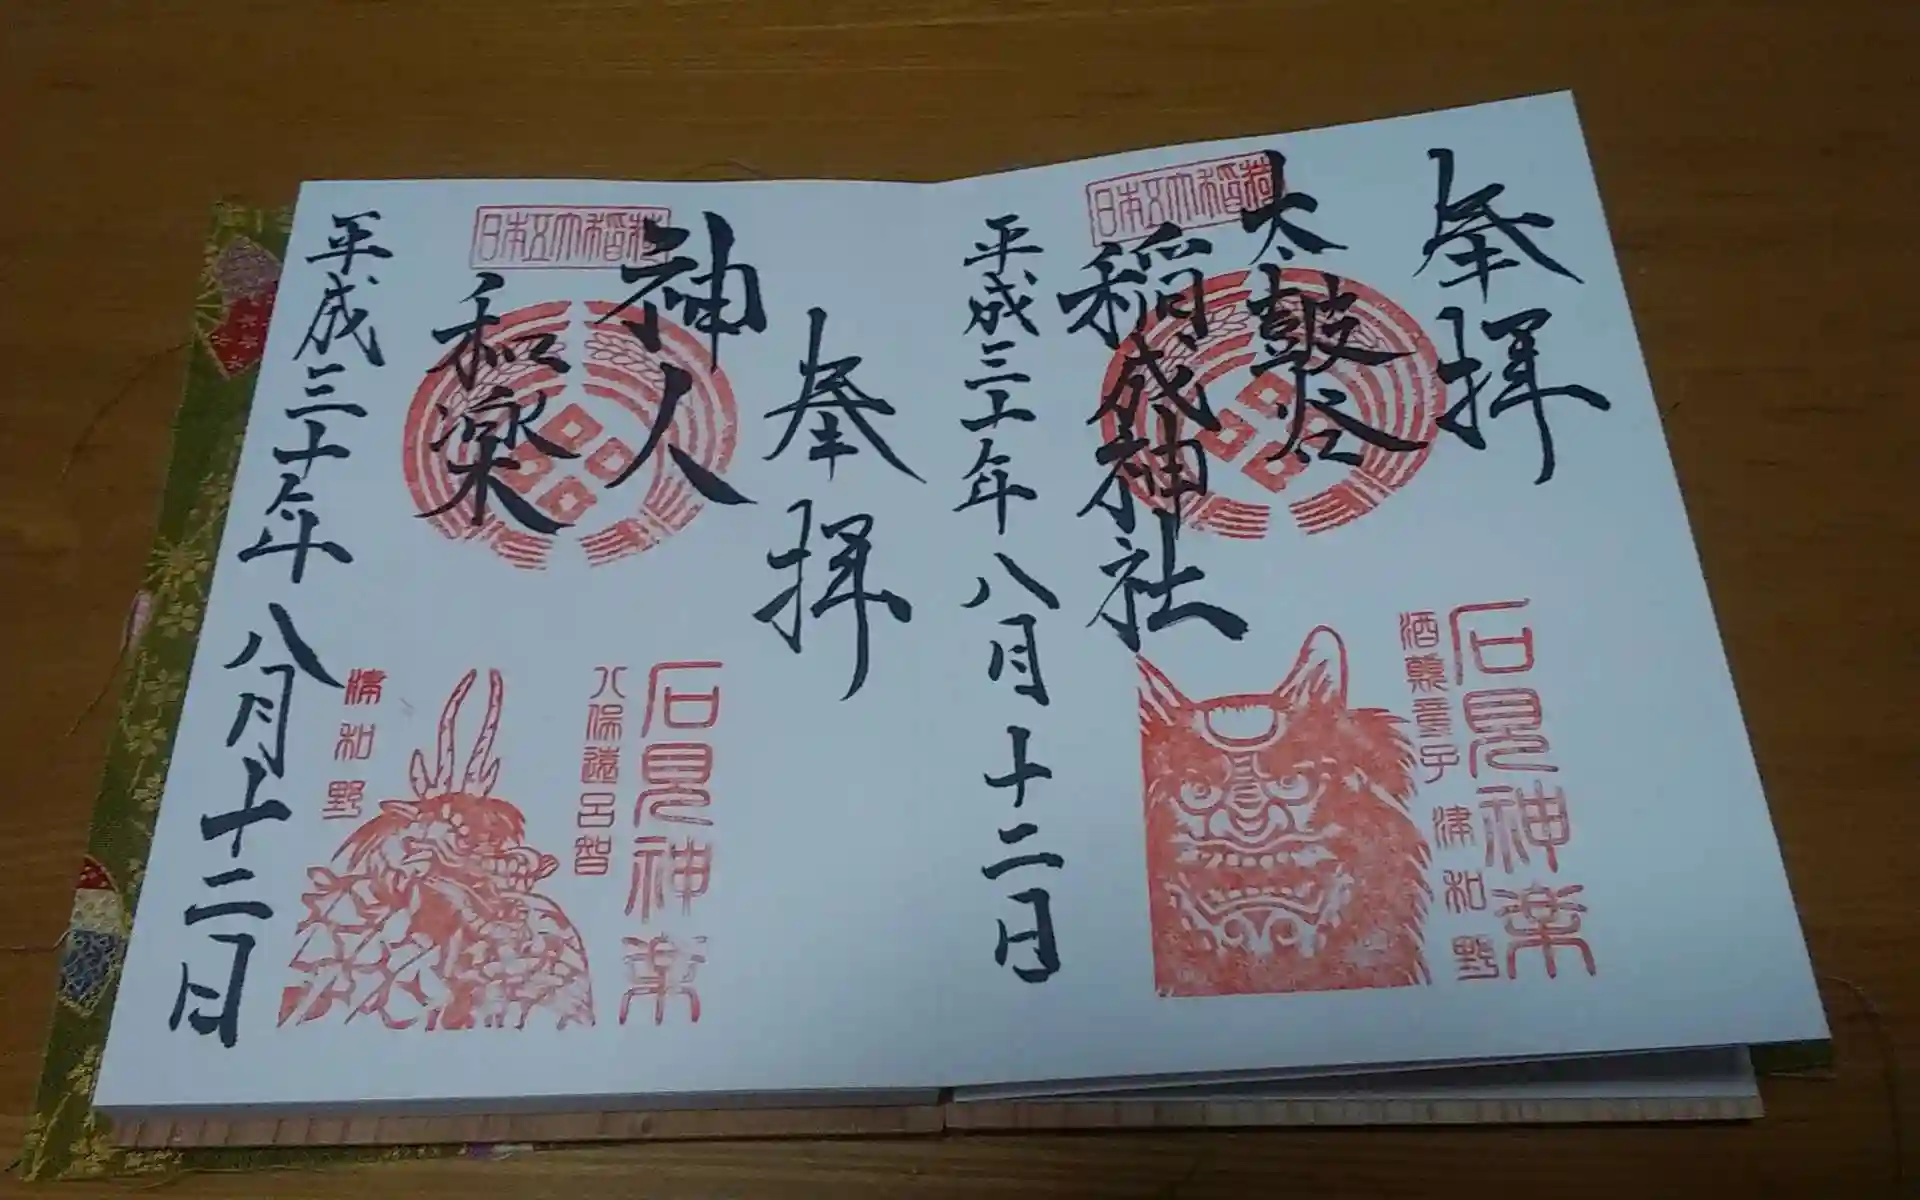 奉拝
日本五大稲荷
太皷谷
稲成神社
平成三十年八月十二日
石見神楽
酒顛童子
津和野
奉拝
日本五大稲荷
神人
和楽
平成三十年八月十二日
石見神楽
八俣遠呂智
津和野